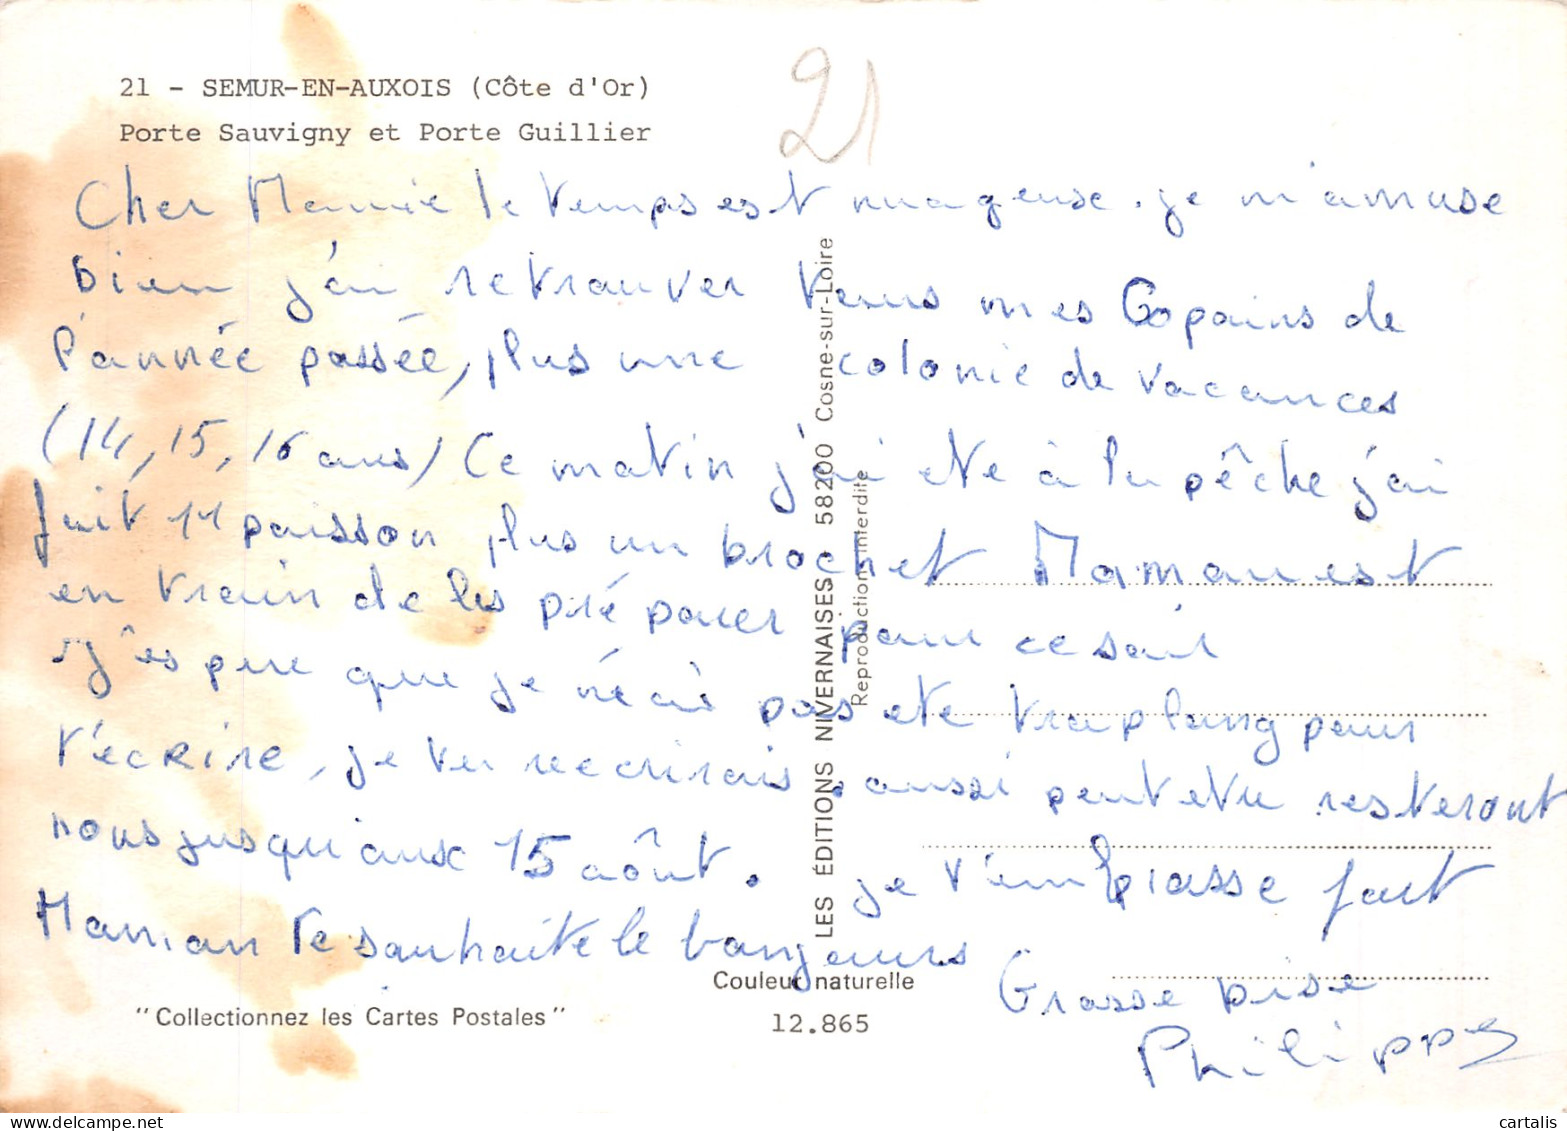 21 - SEMUR-EN-AUXOIS (Côte d'Or)
Porte Sauvigny et Porte Guillier
21
Cher Mamie le temps est nuageuse. je m'amuse
bien j'ai retrouver tous mes Copains de
l'année passée, plus une colonie de vacances
(14, 15, 16 ans) Ce matin j'ai ete à la pêche j'ai
fait 11 poisson plus un brochet Maman est
en train de les préparer pour ce soir
J'espere que je n'écris pas ete trop long pour
t'ecrire, je te reecrirais. aussi peut etre resteront
nous jusqu'aux 15 août. je t'embrasse fort
Maman te souhaite le bonjours
Grosse bise
Philippe
LES ÉDITIONS NIVERNAISES - 58200 Cosne-sur-Loire
Reproductions interdite
Couleur naturelle
12.865
"Collectionnez les Cartes Postales"
cartalis